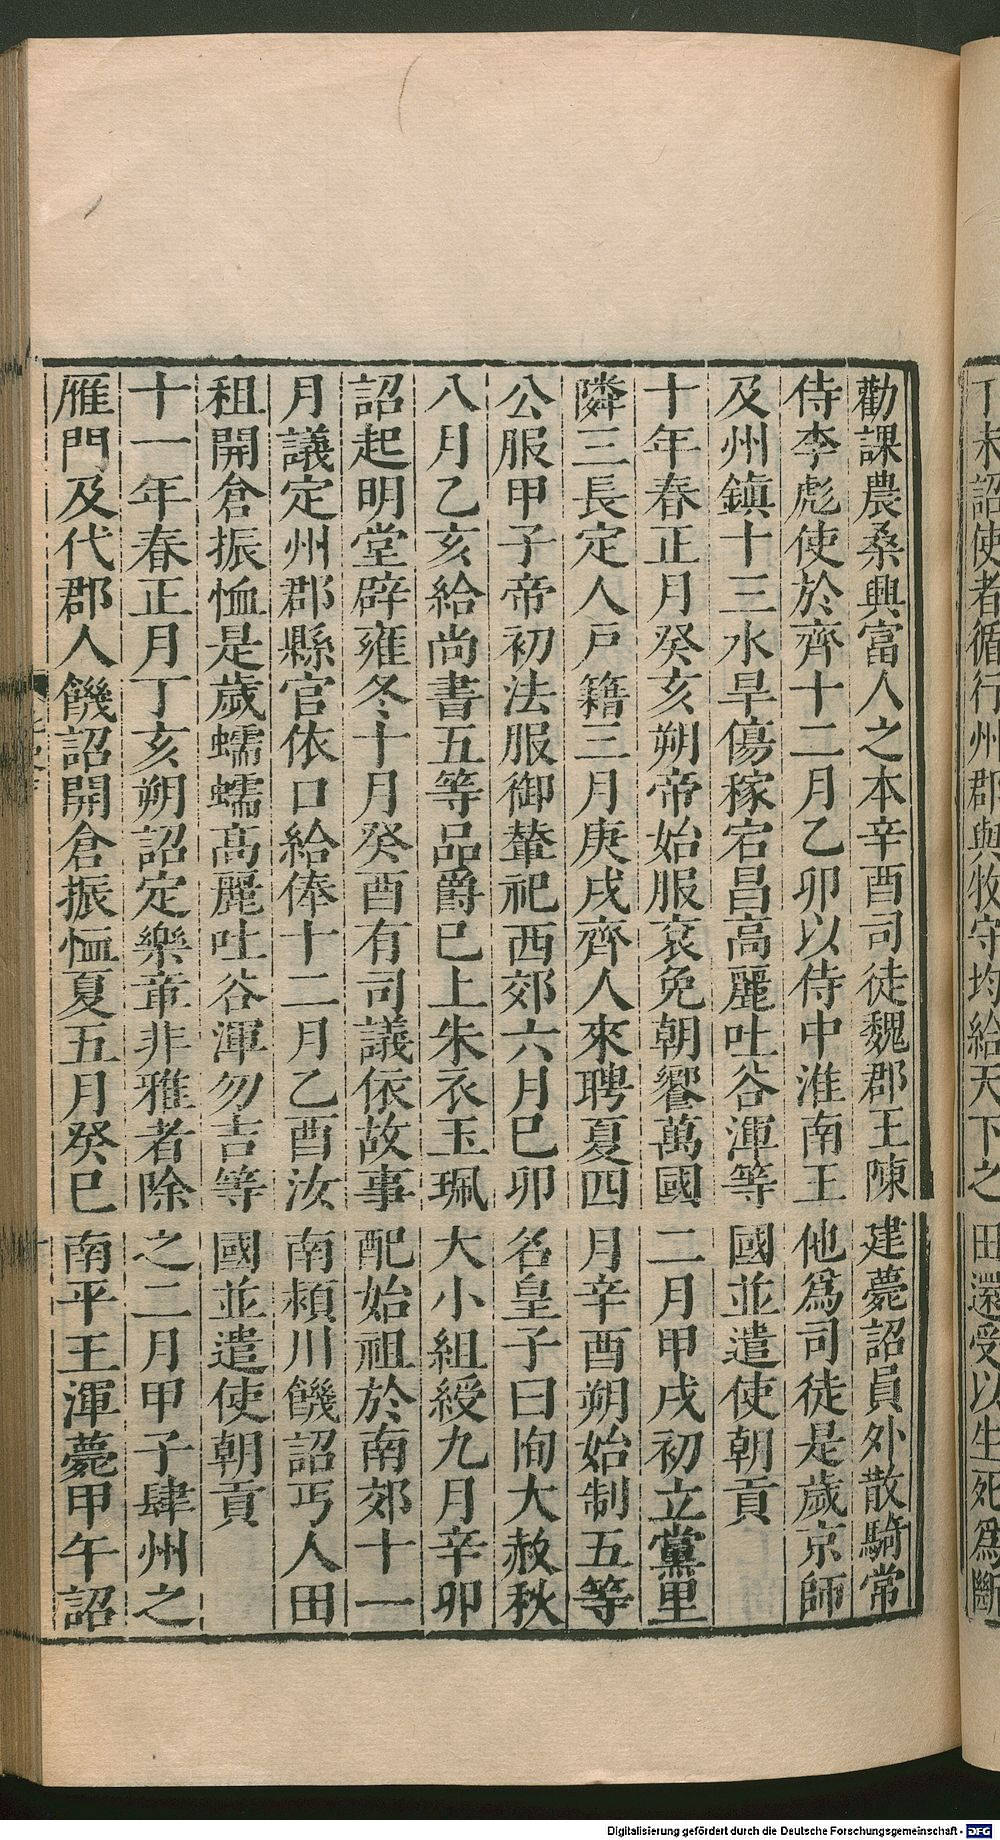 丁未詔使者循行州郡與牧守均給天下之田還受以生死爲斷
勸課農桑興富人之本辛酉司徒魏郡王陳建薨詔員外散騎常
侍李彪使於齊十二月乙卯以侍中淮南王他爲司徒是歲京師
及州鎮十三水旱傷稼宕昌高麗吐谷渾等國並遣使朝貢
十年春正月癸亥朔帝始服衮冕朝饗萬國二月甲戌初立黨里
隣三長定人戸籍三月庚戌齊人來聘夏四月辛酉朔始制五等
公服甲子帝初法服御輦祀西郊六月巳卯名皇子曰恂大赦秋
八月乙亥給尚書五等品爵巳上朱衣玉珮大小組綬九月辛卯
詔起明堂辟雍冬十月癸酉有司議依故事配始祖於南郊十一
月議定州郡縣官依口給俸十二月乙酉汝南頴川饑詔丐人田
租開倉振恤是歲蠕蠕高麗吐谷渾勿吉等國並遣使朝貢
十一年春正月丁亥朔詔定樂章非雅者除之二月甲子肆州之
雁門及代郡人饑詔開倉振恤夏五月癸巳南平王渾薨甲午詔
Digitalisierung gefördert durch die Deutsche Forschungsgemeinschaft - DFG